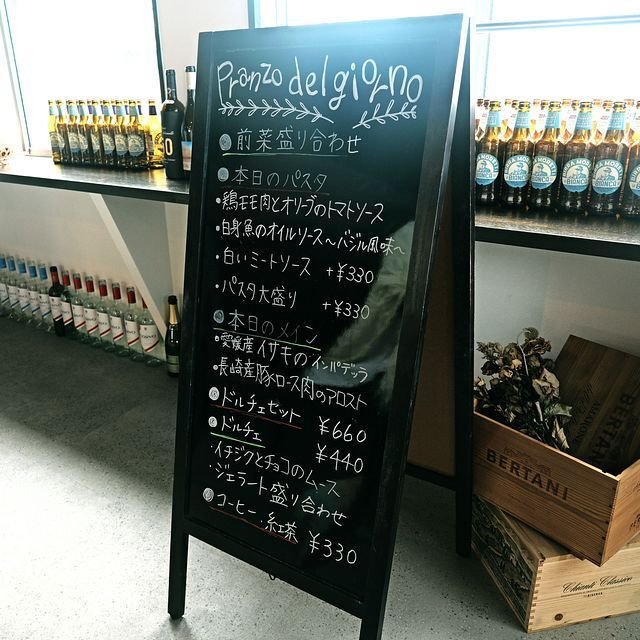 Pranzo del giorno
前菜盛り合わせ
本日のパスタ
・鶏モモ肉とオリーブのトマトソース
・白身魚のオイルソース〜バジル風味〜
・白いミートソース +¥330
・パスタ大盛り +¥330
本日のメイン
・愛媛産イサキのインパデッラ
・長崎産豚ロース肉のアロスト
ドルチェセット ¥660
ドルチェ ¥440
・イチジクとチョコのムース
・ジェラート盛り合わせ
コーヒー 紅茶 ¥330
BERTANI
BERTANI
Chianti Classico